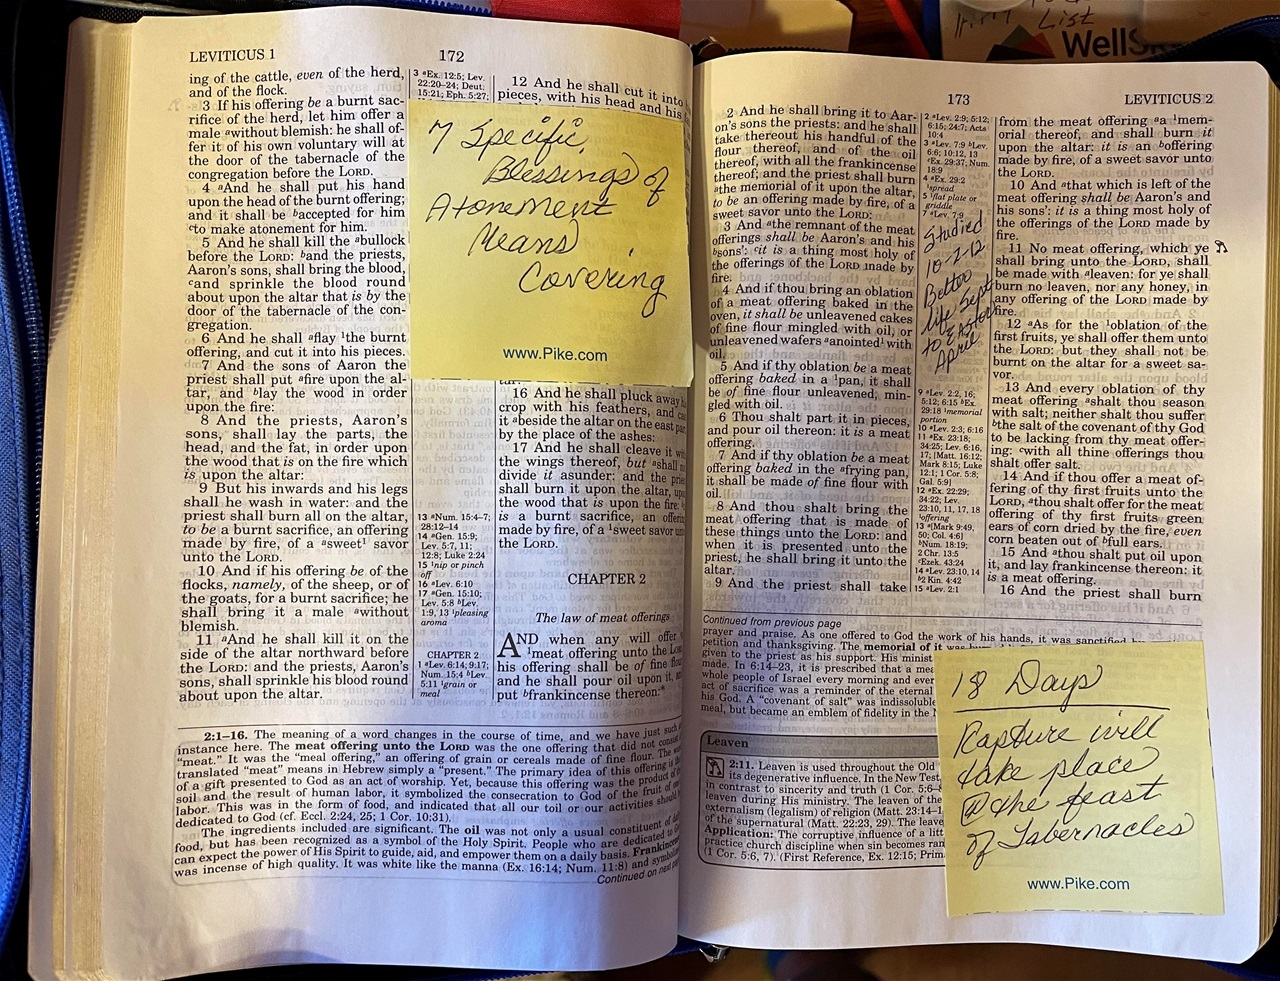 List
WellS
LEVITICUS 1
172
ing of the cattle, even of the herd,
and of the flock.
3 If his offering be a burnt sac-
rifice of the herd, let him offer a
male ᵃwithout blemish: he shall of-
fer it of his own voluntary will at
the door of the tabernacle of the
congregation before the LORD.
4 ᵃAnd he shall put his hand
upon the head of the burnt offering;
and it shall be ᵇaccepted for him
ᶜto make atonement for him.
5 And he shall kill the ᵃbullock
before the LORD: ᵇand the priests,
Aaron's sons, shall bring the blood,
ᶜand sprinkle the blood round
about upon the altar that is by the
door of the tabernacle of the con-
gregation.
6 And he shall ᵃflay ¹the burnt
offering, and cut it into his pieces.
7 And the sons of Aaron the
priest shall put ᵃfire upon the al-
tar, and ᵇlay the wood in order
upon the fire:
8 And the priests, Aaron's
sons, shall lay the parts, the
head, and the fat, in order upon
the wood that is on the fire which
is upon the altar:
9 But his inwards and his legs
shall he wash in water: and the
priest shall burn all on the altar,
to be a burnt sacrifice, an offering
made by fire, of a ᵃsweet¹ savor
unto the LORD.
10 And if his offering be of the
flocks, namely, of the sheep, or of
the goats, for a burnt sacrifice; he
shall bring it a male ᵃwithout
blemish.
11 ᵃAnd he shall kill it on the
side of the altar northward before
the LORD: and the priests, Aaron's
sons, shall sprinkle his blood round
about upon the altar.
3 ᵃEx. 12:5; Lev.
22:20–24; Deut.
15:21; Eph. 5:27;
13 ᵃNum. 15:4–7;
28:12–14
14 ᵃGen. 15:9;
Lev. 5:7, 11;
12:8; Luke 2:24
15 ¹nip or pinch
off
16 ᵃLev. 6:10
17 ᵃGen. 15:10;
Lev. 5:8 ᵇLev.
1:9, 13 ¹pleasing
aroma
CHAPTER 2
1 ᵃLev. 6:14; 9:17;
Num. 15:4 ᵇLev.
5:11 ¹grain or
meal
12 And he shall cut it into
pieces, with his head and his
7 Specific
Blessings of
Atonement
Means
Covering
www.Pike.com
16 And he shall pluck away
crop with his feathers, and
it ᵃbeside the altar on the east
by the place of the ashes:
17 And he shall cleave it
the wings thereof, but ᵃshall
divide it asunder: and the
shall burn it upon the altar,
the wood that is upon the fire:
is a burnt sacrifice, an
made by fire, of a ¹sweet savor
the LORD.
CHAPTER 2
The law of meat offerings
AND when any will offer
¹meat offering unto the
his offering shall be of fine
and he shall pour oil upon it,
put ᵇfrankincense thereon:
2:1–16. The meaning of a word changes in the course of time, and we have just such
instance here. The meat offering unto the LORD was the one offering that did not
"meat." It was the "meal offering," an offering of grain or cereals made of fine flour. The
translated "meat" means in Hebrew simply a "present." The primary idea of this offering is
of a gift presented to God as an act of worship. Yet, because this offering was the product of
soil and the result of human labor, it symbolized the consecration to God of the fruit of
labor. This was in the form of food, and indicated that all our toil or our activities should
dedicated to God (cf. Eccl. 2:24, 25; 1 Cor. 10:31).
The ingredients included are significant. The oil was not only a usual constituent of
food, but has been recognized as a symbol of the Holy Spirit. People who are dedicated to
can expect the power of His Spirit to guide, aid, and empower them on a daily basis.
was incense of high quality. It was white like the manna (Ex. 16:14; Num. 11:8) and
Continued on next
173
LEVITICUS 2
2 And he shall bring it to Aar-
on's sons the priests: and he shall
take thereout his handful of the
flour thereof, and of the oil
thereof, with all the frankincense
thereof; and the priest shall burn
ᵃthe memorial of it upon the altar,
to be an offering made by fire, of a
sweet savor unto the LORD:
3 And ᵃthe remnant of the meat
offerings shall be Aaron's and his
ᵇsons': ᶜit is a thing most holy of
the offerings of the LORD made by
fire.
4 And if thou bring an oblation
of a meat offering baked in the
oven, it shall be unleavened cakes
of fine flour mingled with oil, or
unleavened wafers ᵃanointed¹ with
oil.
5 And if thy oblation be a meat
offering baked in a ¹pan, it shall
be of fine flour unleavened, min-
gled with oil.
6 Thou shalt part it in pieces,
and pour oil thereon: it is a meat
offering.
7 And if thy oblation be a meat
offering baked in the ᵃfrying pan,
it shall be made of fine flour with
oil.
8 And thou shalt bring the
meat offering that is made of
these things unto the LORD: and
when it is presented unto the
priest, he shall bring it unto the
altar.
9 And the priest shall take
2 ᵃLev. 2:9; 5:12;
6:15; 24:7; Acts
10:4
3 ᵃLev. 7:9 ᵇLev.
6:6; 10:12, 13
ᶜEx. 29:37; Num.
18:9
4 ᵃEx. 29:2
¹spread
5 ¹flat plate or
griddle
7 ᵃLev. 7:9
Studied
10-2-12
Better
life Sept
to Easter
April
9 ᵃLev. 2:2, 16;
5:12; 6:15 ᵇEx.
29:18 ¹memorial
portion
10 ᵃLev. 2:3; 6:16
11 ᵃEx. 23:18;
34:25; Lev. 6:16,
17; [Matt. 16:12;
Mark 8:15; Luke
12:1; 1 Cor. 5:8;
Gal. 5:9]
12 ᵃEx. 22:29;
34:22; Lev.
23:10, 11, 17, 18
¹offering
13 ᵃ[Mark 9:49,
50; Col. 4:6]
ᵇNum. 18:19;
2 Chr. 13:5
ᶜEzek. 43:24
14 ᵃLev. 23:10, 14
ᵇ2 Kin. 4:42
15 ᵃLev. 2:1
from the meat offering ᵃa ¹mem-
orial thereof, and shall burn it
upon the altar: it is an ᵇoffering
made by fire, of a sweet savor unto
the LORD.
10 And ᵃthat which is left of the
meat offering shall be Aaron's and
his sons': it is a thing most holy of
the offerings of the LORD made by
fire.
11 No meat offering, which ye
shall bring unto the LORD, shall
be made with ᵃleaven: for ye shall
burn no leaven, nor any honey, in
any offering of the LORD made by
fire.
12 ᵃAs for the ¹oblation of the
first fruits, ye shall offer them unto
the LORD: but they shall not be
burnt on the altar for a sweet sa-
vor.
13 And every oblation of thy
meat offering ᵃshalt thou season
with salt; neither shalt thou suffer
ᵇthe salt of the covenant of thy God
to be lacking from thy meat offer-
ing: ᶜwith all thine offerings thou
shalt offer salt.
14 And if thou offer a meat of-
fering of thy first fruits unto the
LORD, ᵃthou shalt offer for the meat
offering of thy first fruits green
ears of corn dried by the fire, even
corn beaten out of ᵇfull ears.
15 And ᵃthou shalt put oil upon
it, and lay frankincense thereon: it
is a meat offering.
16 And the priest shall burn
Continued from previous page
prayer and praise. As one offered to God the work of his hands, it was sanctified
petition and thanksgiving. The memorial of it was
given to the priest as his support. His
made. In 6:14–23, it is prescribed that a
whole people of Israel every morning and
act of sacrifice was a reminder of the eternal
his God. A "covenant of salt" was
meal, but became an emblem of fidelity in the
Leaven
2:11. Leaven is used throughout the Old
its degenerative influence. In the New
in contrast to sincerity and truth (1 Cor. 5:6–
leaven during His ministry. The leaven of the
externalism (legalism) of religion (Matt. 23:14–
of the supernatural (Matt. 22:23, 29). The
Application: The corruptive influence of a
practice church discipline when sin becomes
(1 Cor. 5:6, 7). (First Reference, Ex. 12:15;
18 Days
Rapture will
take place
@ the feast
of Tabernacles
www.Pike.com